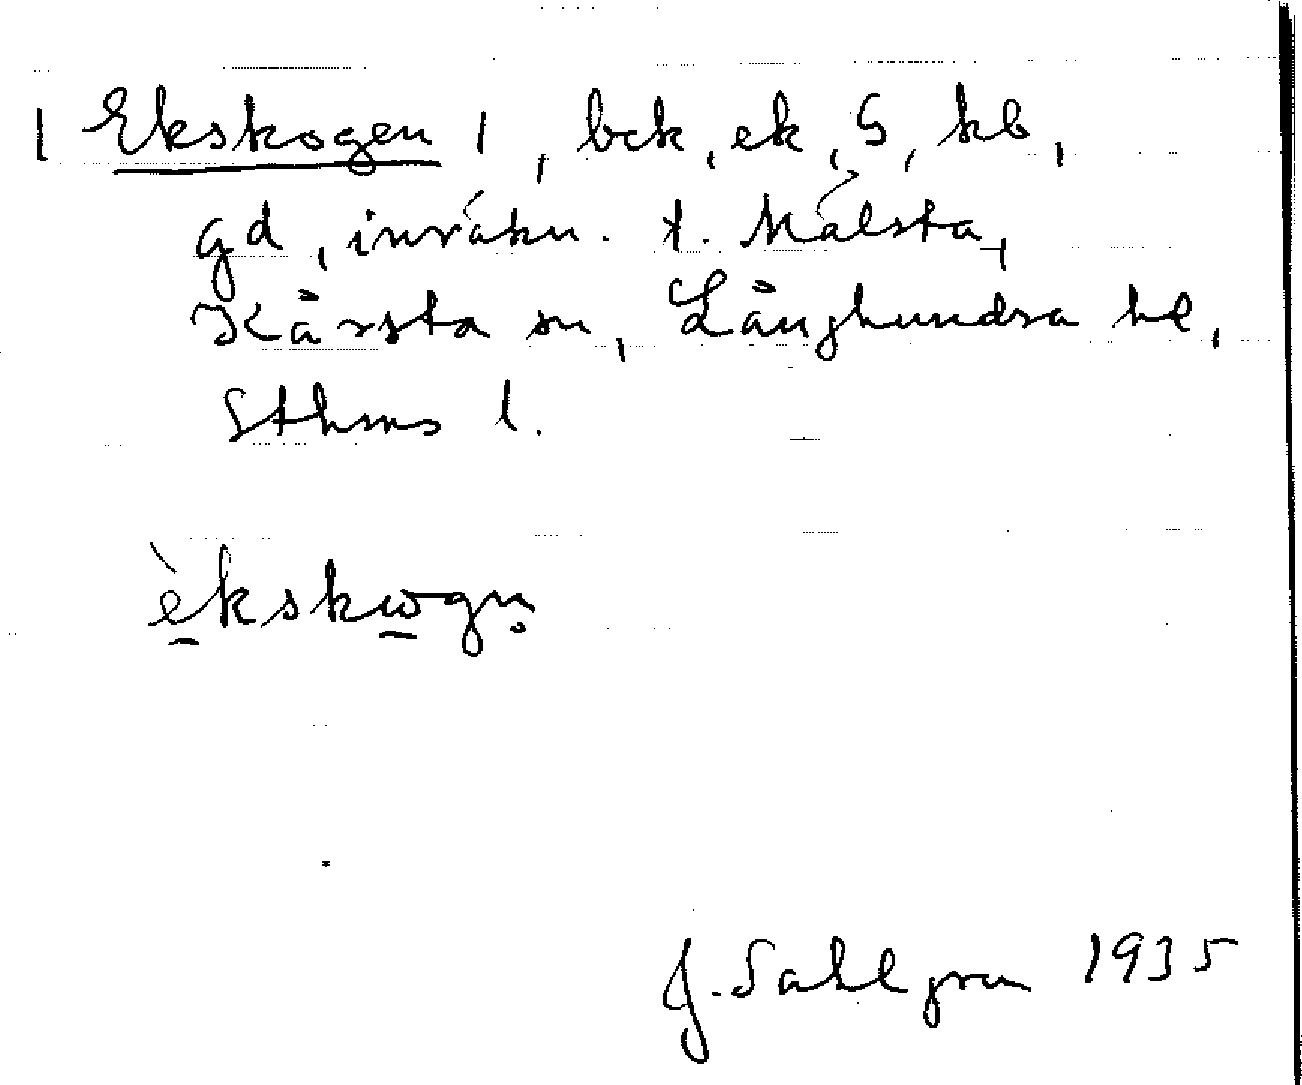 | Ekskogen |, bck, ek, S, kb,
gd, inräkn. t. Målsta,
Kårsta sn, Långhundra hd,
Sthms l.
èkskωgn̥
J. Sahlgren 1935